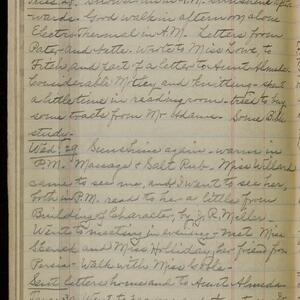 Tues. 28. Snowed in A.M. Sunshine after-
wards. Good walk in afternoon alone
Electro Thermal in A.M. Letters from
Pater and Mater. Wrote to Miss Lowe, to
and part of a letter to Aunt Almeda
Considerable Motley and Knitting - spent
a little time in reading room - tried to buy
some tracts from Mr Adams. Some Bible
study.
Wed. 29 Sunshine again - warm in
P.M. Massage & Salt Rub. Miss Willard
came to see me, and I went to see her,
both in P.M. read to her a little from
Building of Character, by J. R. Miller -
Went to meeting in evening - met Miss
and Miss Holliday, her friend from
Persia - Walk with Miss
Sent letters home and to Aunt Almeda